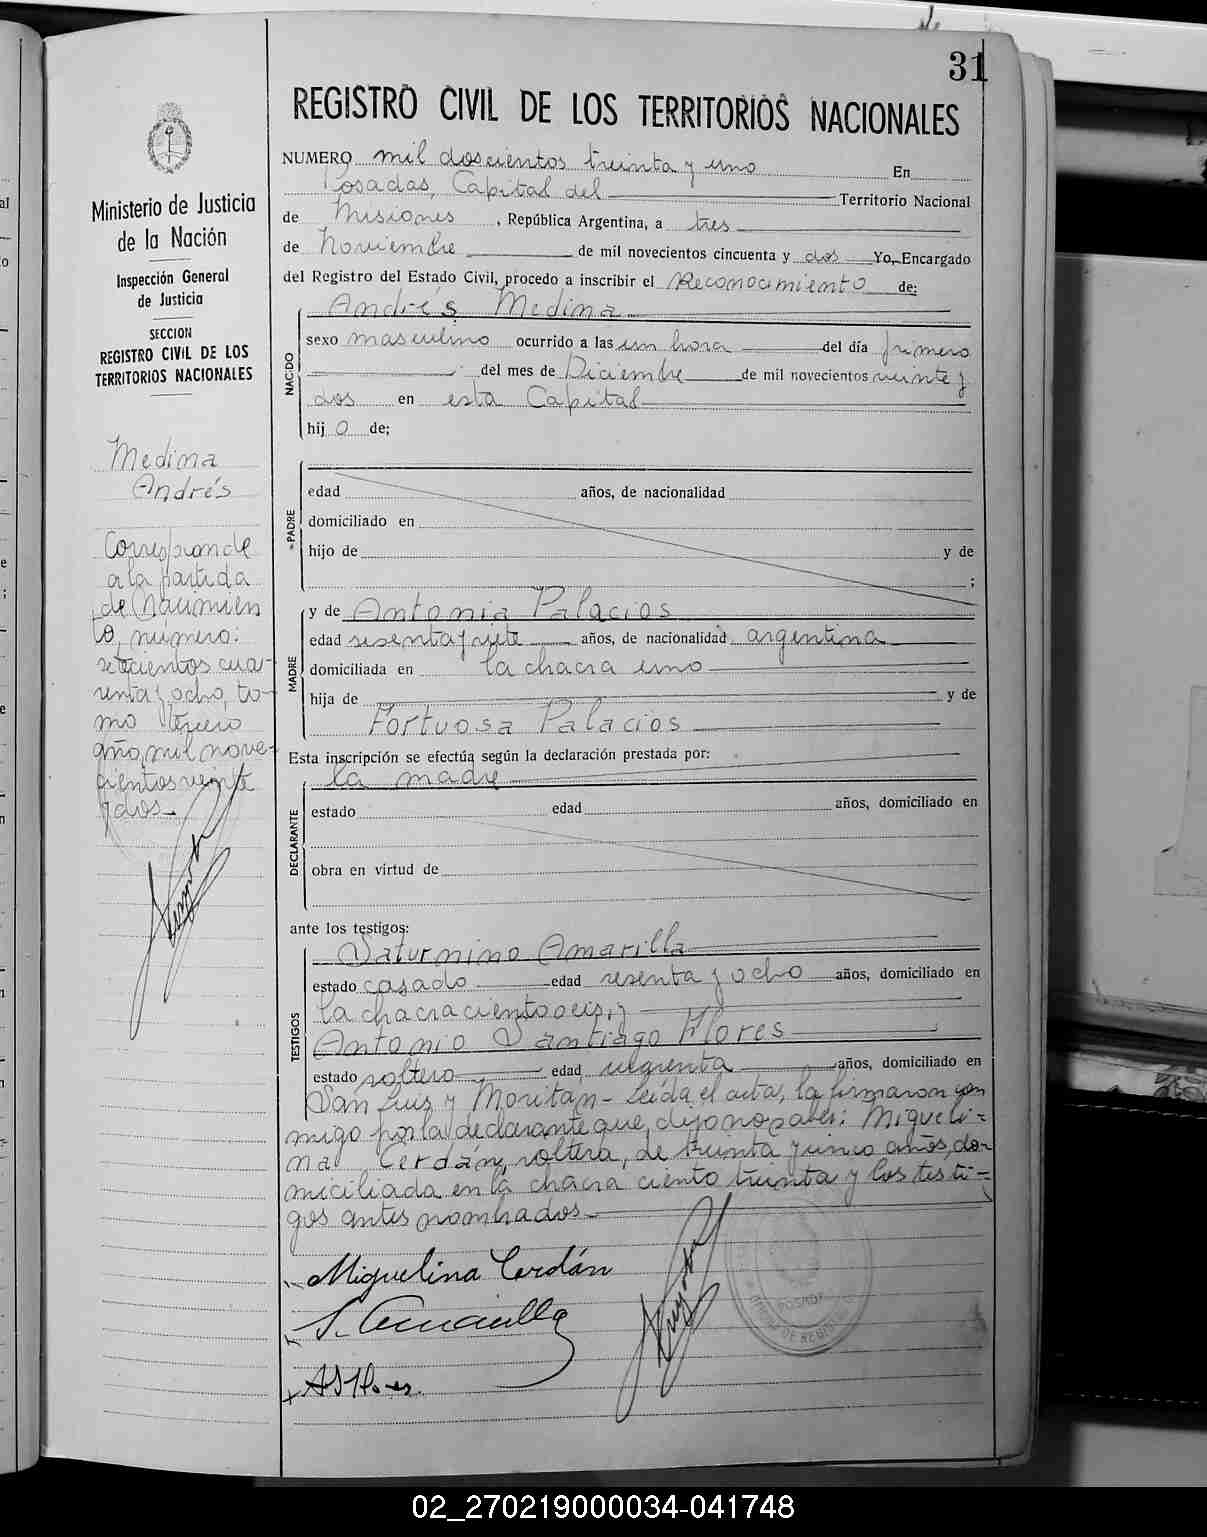 31
REGISTRO CIVIL DE LOS TERRITORIOS NACIONALES
NUMERO mil doscientos treinta y uno En
Posadas, Capital del Territorio Nacional
de Misiones, República Argentina, a tres
de Noviembre de mil novecientos cincuenta y dos Yo, Encargado
del Registro del Estado Civil, procedo a inscribir el Reconocimiento de:
Andrés Medina
NACIDO
sexo masculino ocurrido a las un hora del día primero
del mes de Diciembre de mil novecientos veinte y
dos en esta Capital
hij o de;
PADRE
edad años, de nacionalidad
domiciliado en
hijo de y de
;
MADRE
y de Antonia Palacios
edad sesenta y siete años, de nacionalidad argentina
domiciliada en la chacra uno
hija de y de
Fortuosa Palacios
Esta inscripción se efectúa según la declaración prestada por:
la madre
DECLARANTE
estado edad años, domiciliado en
obra en virtud de
ante los testigos:
TESTIGOS
Saturnino Amarilla
estado casado edad sesenta y ocho años, domiciliado en
la chacra ciento seis, y
Antonio Santiago Flores
estado soltero edad años, domiciliado en
San Luis y Moritán - Leída el acta, la firmaron con
migo por la declarante que dijo no saber: Migueli=
na Cerdán, soltera, de treinta y cinco años, do-
miciliada en la chacra ciento treinta y los testi=
gos antes nombrados
Miguelina Cerdán
S. Amarilla
x ASFlores.
POSADAS
Ministerio de Justicia
de la Nación
Inspección General
de Justicia
SECCION
REGISTRO CIVIL DE LOS
TERRITORIOS NACIONALES
Medina
Andrés
Corresponde
a la partida
de Nacimien
to, número:
setecientos cua-
renta y ocho, to-
mo tercero
año mil nove-
cientos veinte
y dos
02_270219000034-041748